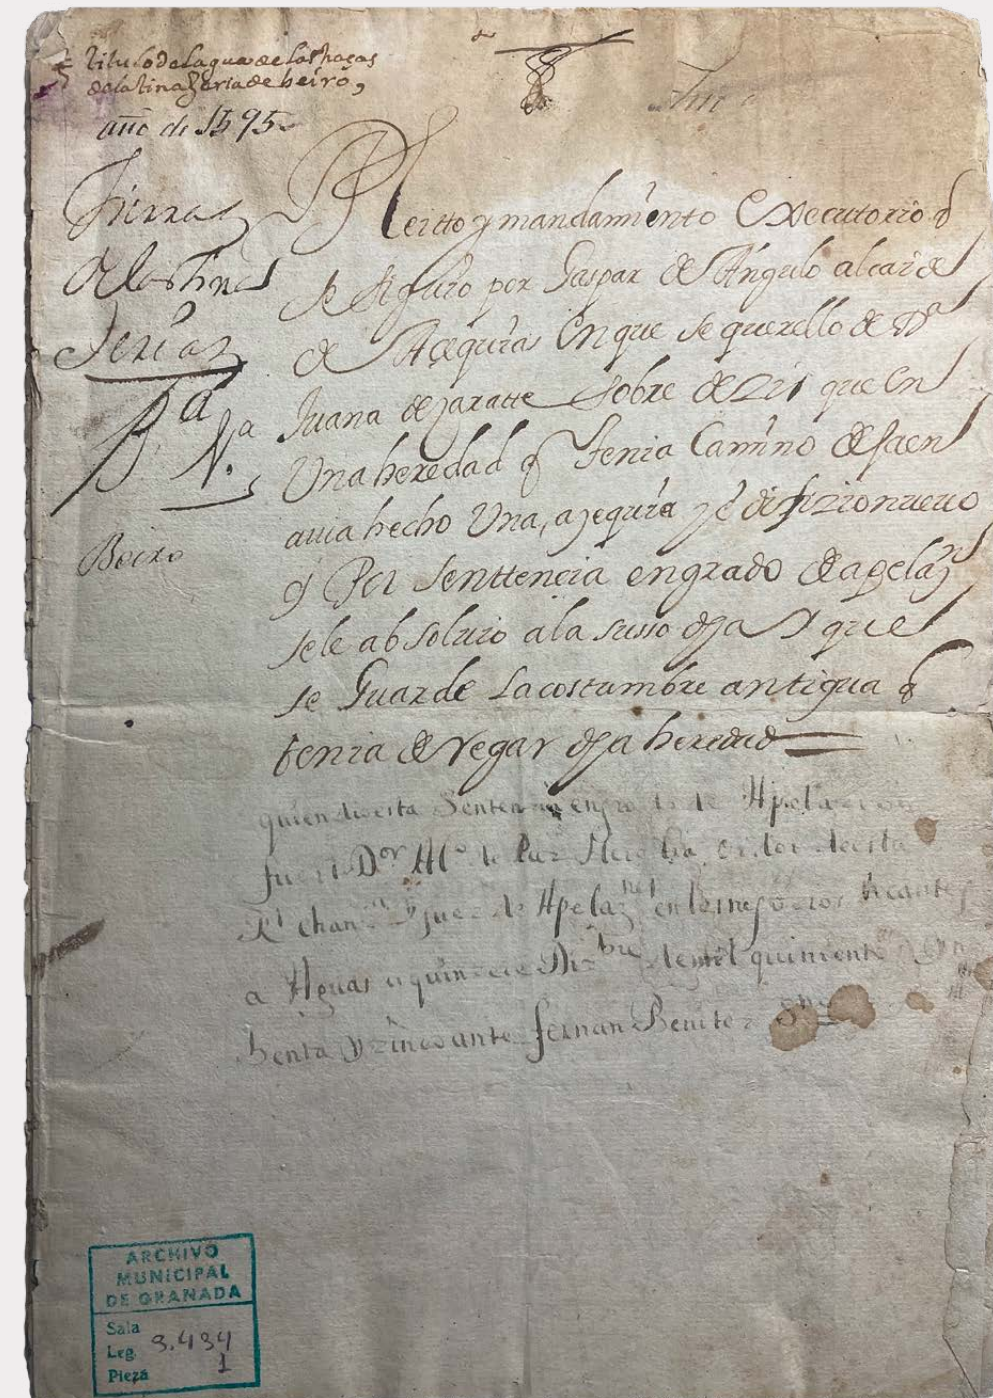 titulo de la gua de las haças
de la tinageria de beiro,
año de 1595
Tierras
de las Tina
Jerias
Beiro
Pleitto y mandamiento Executorio q̄
se siguio por Gaspar de Angulo alcaide
de Açequias En que se querello de Dª
Juana de zaratte sobre dezir que En
Una heredad q̄ tenia Camino de Jaen
auia hecho Una, azequia y edifizio nueuo
q̄ Por senttencia en grado de apelaz
se le absoluio a la susso dha Y que
se Guarde La costumbre antigua q̄
tenia de regar dha heredad
quien dio esta Sentencia en grado de Apelacion
fue el Dor de Paz oidor de esta
Rl Chanª y juez de Apelaz en los negocios tocantes
a Aguas a quince de Dizbre de mil quinientos
benta y zinco ante fernan Benitez
ARCHIVO
MUNICIPAL
DE GRANADA
Sala
Leg. 3.434
Pieza 1